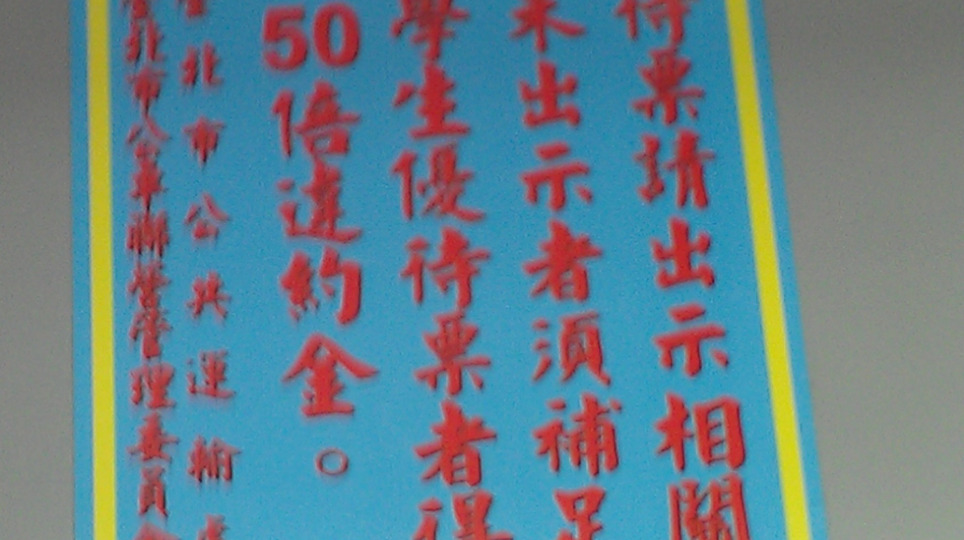 待票請出示相關
未出示者須補足
學生優待票者得
50倍違約金。
臺北市公共運輸處
臺北市公車聯營管理委員會